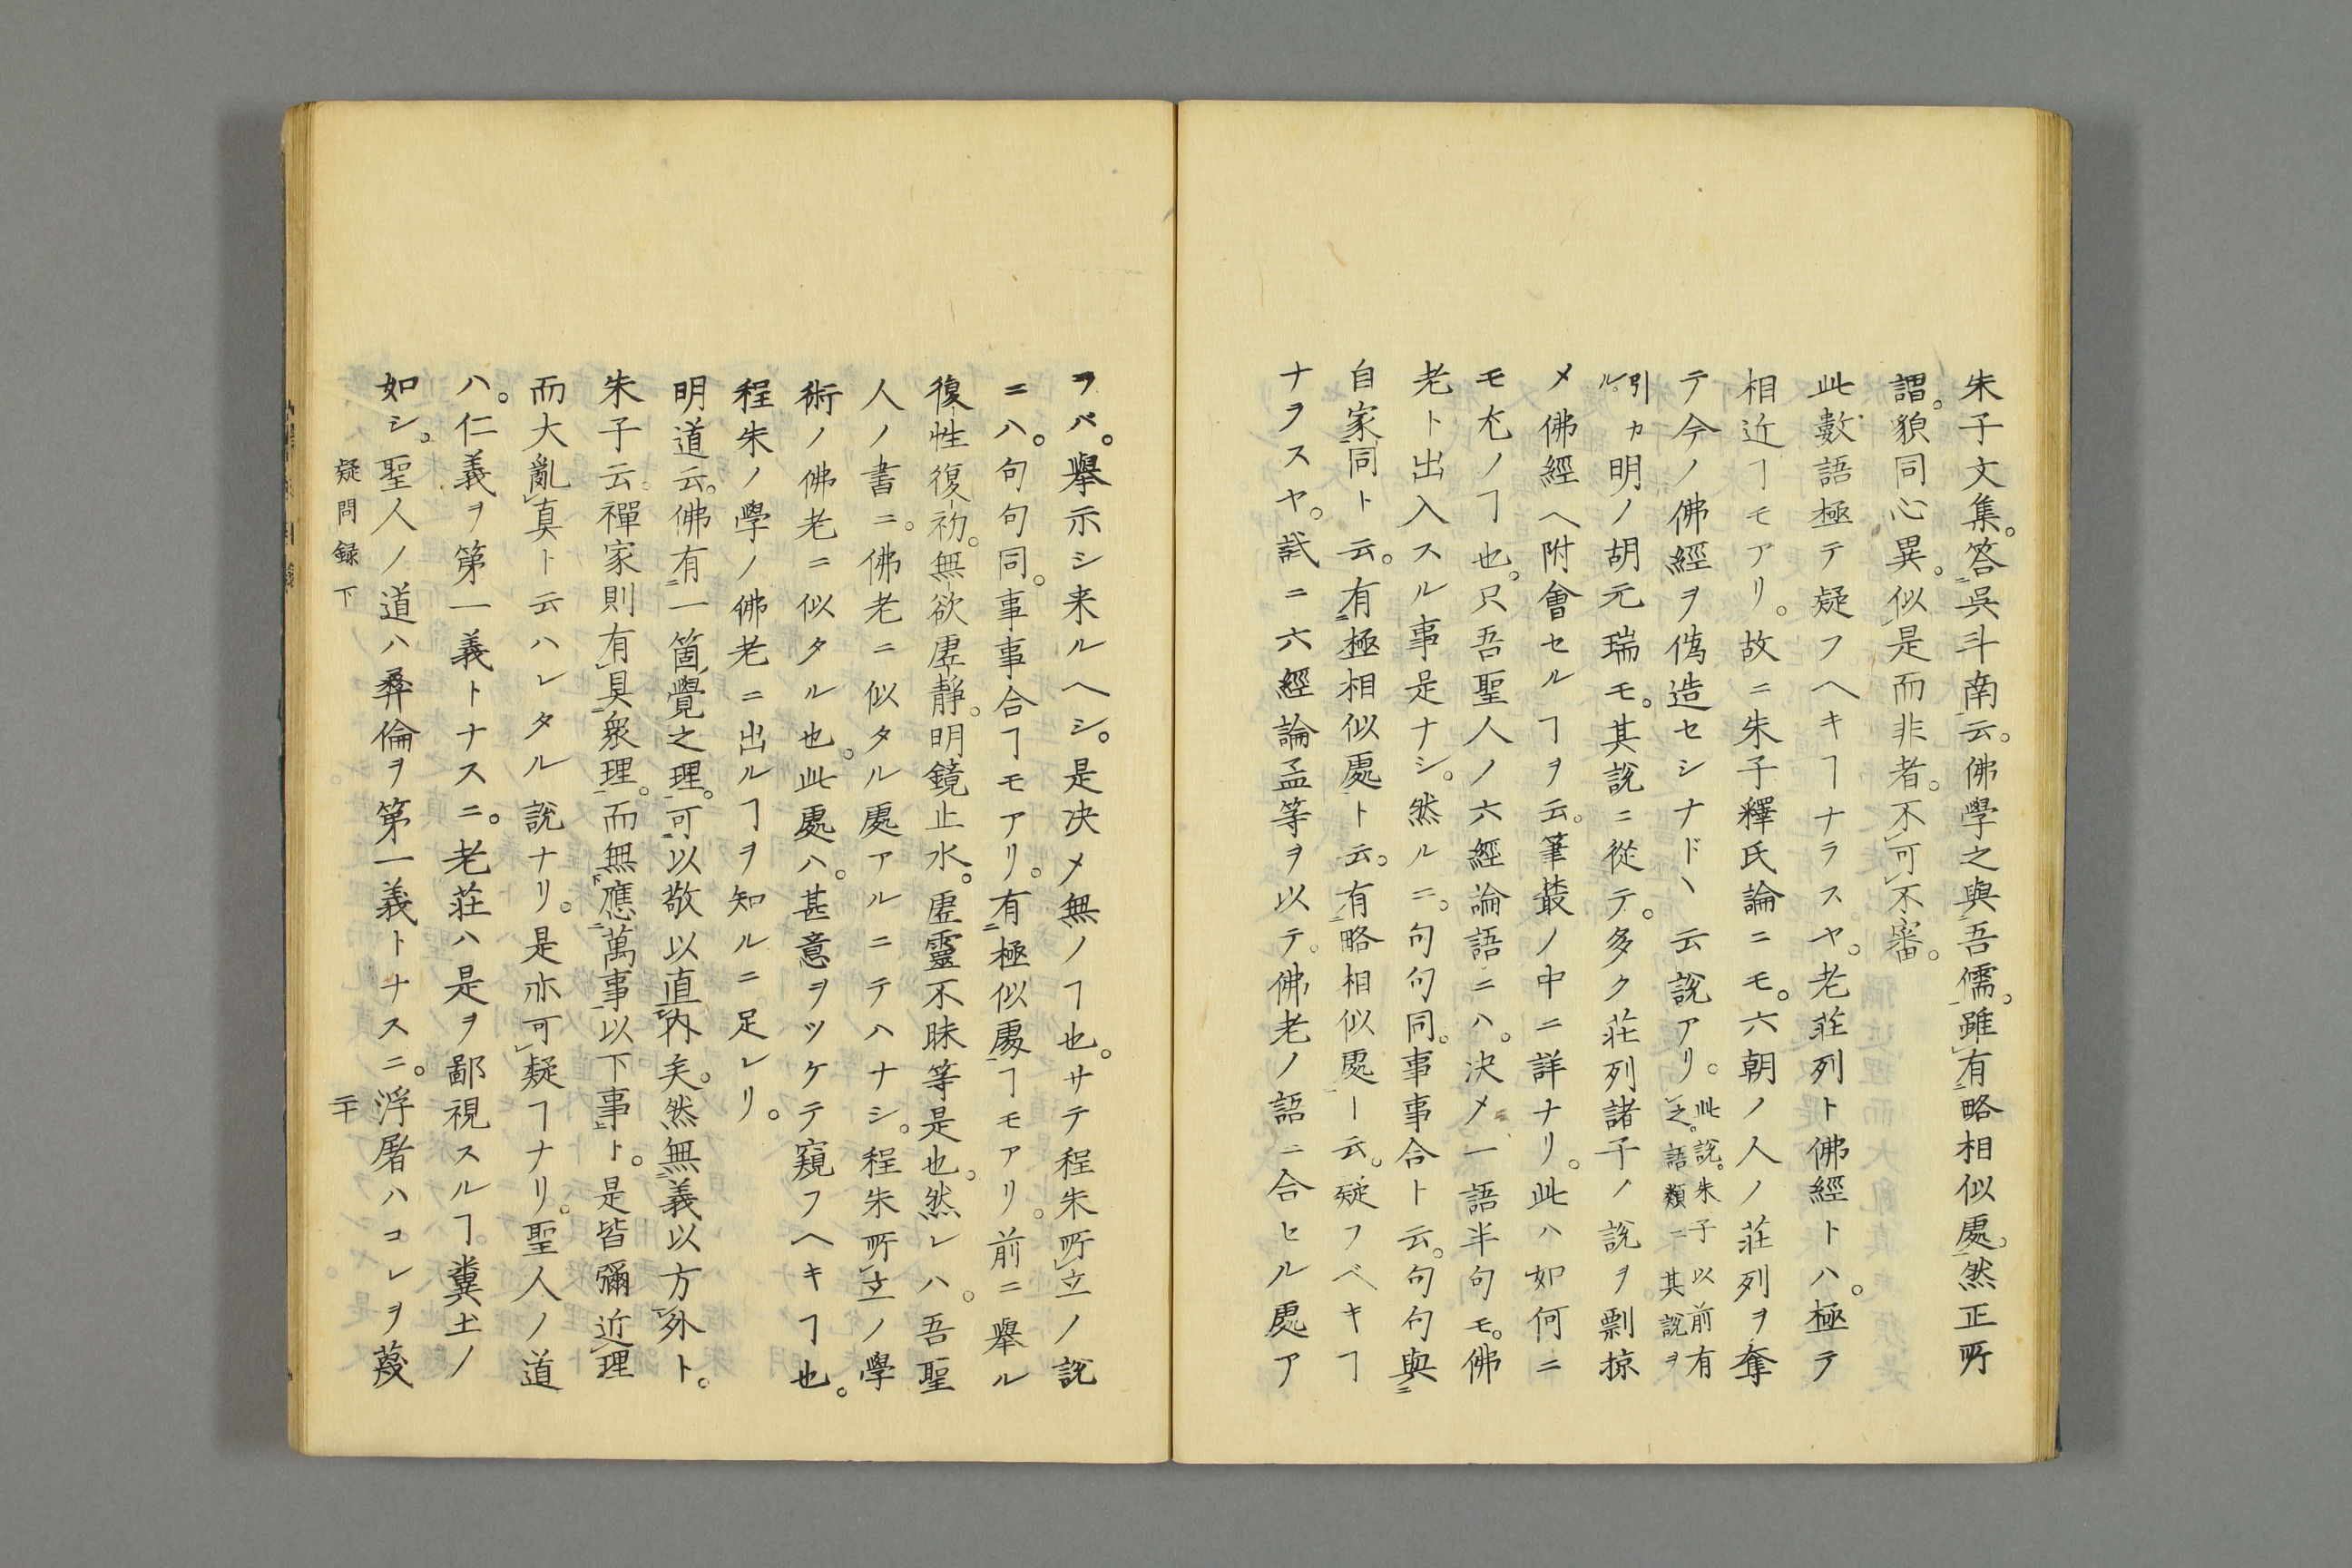 朱子文集。答呉斗南云。佛學之與吾儒。雖有略相似處。然正所
謂。貌同心異。似是而非者。不可不審。
此數語極テ疑フヘキヿナラスヤ。老莊列ト佛經トハ。極テ
相近ヿモアリ。故ニ朱子釋氏論ニモ。六朝ノ人ノ莊列ヲ奪
テ今ノ佛經ヲ僞造セシナドヽ云說アリ。此說。朱子以前有之。語類ニ其說ヲ
引ル カ明ノ胡元瑞モ。其說ニ從テ。多ク莊列諸子ノ說ヲ剽掠
メ佛經ヘ附會セルヿヲ云。筆叢ノ中ニ詳ナリ。此ハ如何ニ
モ尤ノヿ也。只吾聖人ノ六經論語ニハ。決メ一語半句モ。佛
老ト出入スル事是ナシ。然ルニ。句句同。事事合ト云。句句與
自家同ト云。有極相似處ト云。有略相似處ト云。疑フベキヿ
ナヲスヤ。試ニ六經論孟等ヲ以テ。佛老ノ語ニ合セル處ア
フバ。擧示シ来ルヘシ。是決メ無ノヿ也。サテ程朱所立ノ說
ニハ。句句同。事事合ヿモアリ。有極似處ヿモアリ。前ニ擧ル
復性復初。無欲虛靜。明鏡止水。虛靈不昧等是也。然レハ。吾聖
人ノ書ニ。佛老ニ似タル處アルニテハナシ。程朱所立ノ學
術ノ佛老ニ似タル也。此處ハ。甚意ヲツケテ窺フヘキヿ也。
程朱ノ學ノ佛老ニ出ルヿヲ知ルニ足レリ。
明道云。佛有一箇覺之理。可以敬以直內矣。然無義以方外ト。
朱子云。禪家則有具衆理。而無應萬事以下事ト。是皆彌近理
而大亂真ト云ハレタル說ナリ。是亦可疑ヿナリ。聖人ノ道
ハ。仁義ヲ第一義トナスニ。老莊ハ是ヲ鄙視スルヿ。糞土ノ
如シ。聖人ノ道ハ彝倫ヲ第一義トナスニ。浮屠ハコレヲ蔑
疑問録下 二十